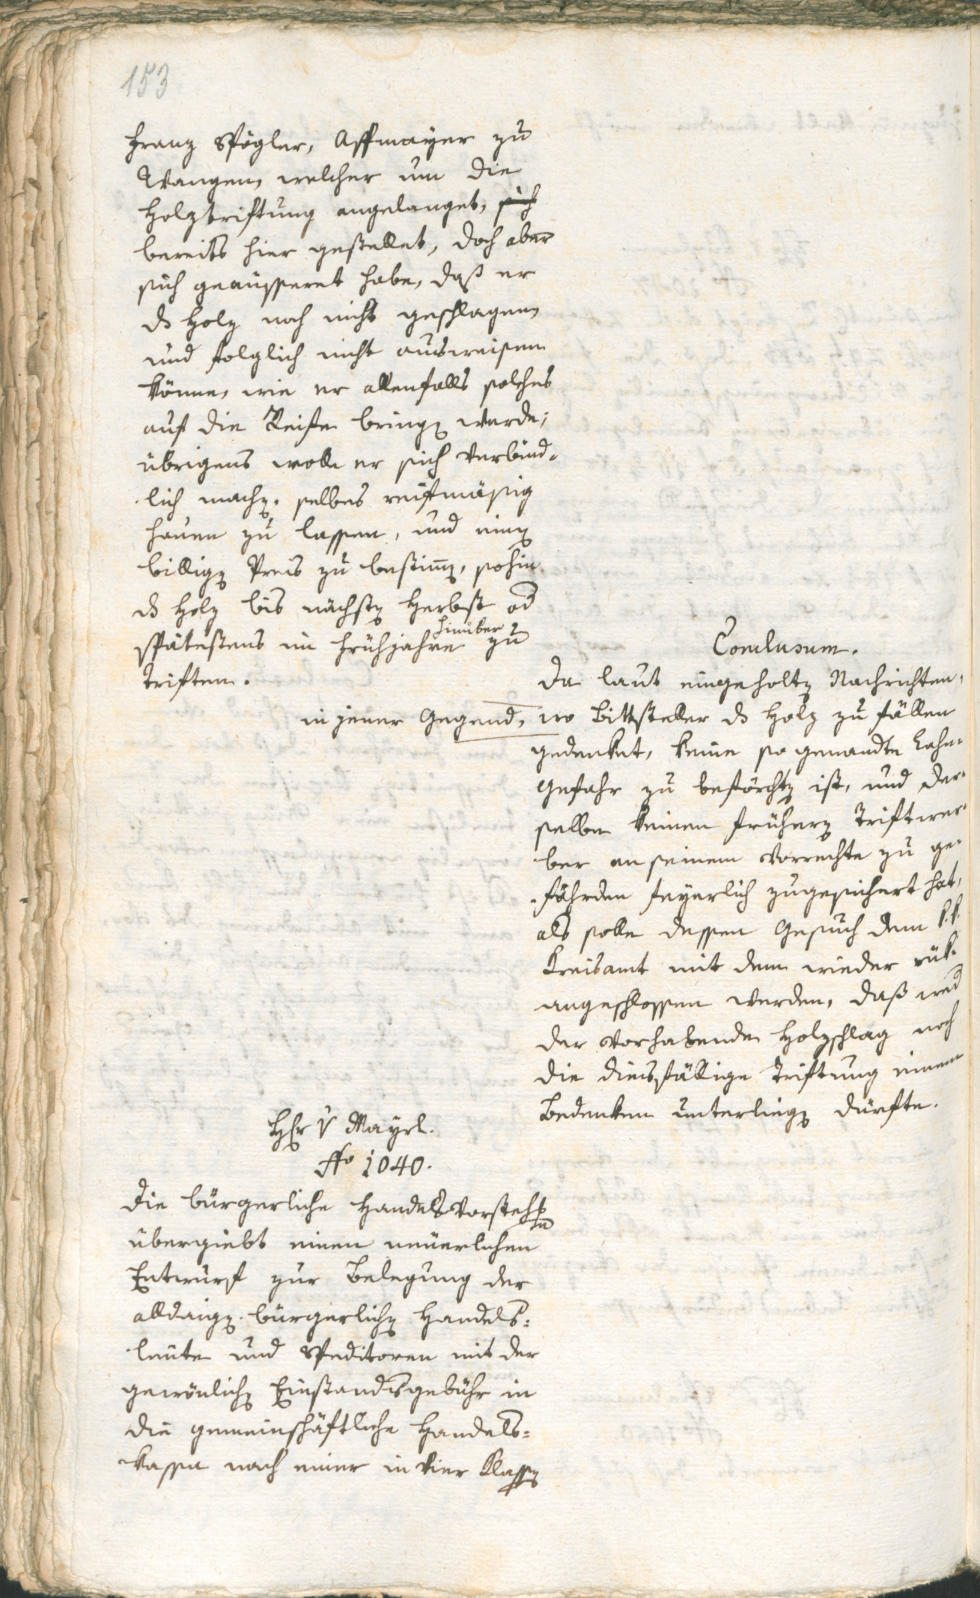 153
Franz Spögler, Affmayer zu
Wangen, welcher um die
Holztriftung angelanget, sich
bereits hier gestellet, doch aber
sich geäusseret habe, daß er
ds Holz noch nicht geschlagen,
und folglich nicht ausweisen
könne, wie er allenfalls solches
auf die Reisten bringe werde;
übrigens wolle er sich verbind-
lich mache, selbes reifmäsig
hauen zu lassen, und eine
billige Preis zu bestime, sohin
ds Holz bis nächste Herbst od
spätestens im Frühjahre hinüber zu
triften.
Conclusum.
Da laut eingeholte Nachrichten,
in jener Gegend, wo Bittsteller ds Holz zu fällen
gedenket, keine so genandte Lahn-
gefahr zu beförchte ist, und der-
selbe keinen frühere Triftwer-
ber an seinem Vorrechte zu ge-
fährden feyerlich zugesichert hat,
als solle dessen Gesuch dem k.k.
Kreisamt mit dem wieder rük-
angeschlossen werden, daß wed
der vorhabende Holzschlag noch
die diesfällige Triftung einem
Bedenken unterliege dürfte.
Hr v Mayrl.
No 1040.
Die bürgerliche Handels Vorstehung
übergiebt einen neuerlichen
Entwurf zur Belegung der
alldaige bürgerliche Handels-
leute und Speditoren mit der
gewönliche Einstandsgebühr in
die gemeinschäftliche Handels-
kassa nach einer in vier Klasse